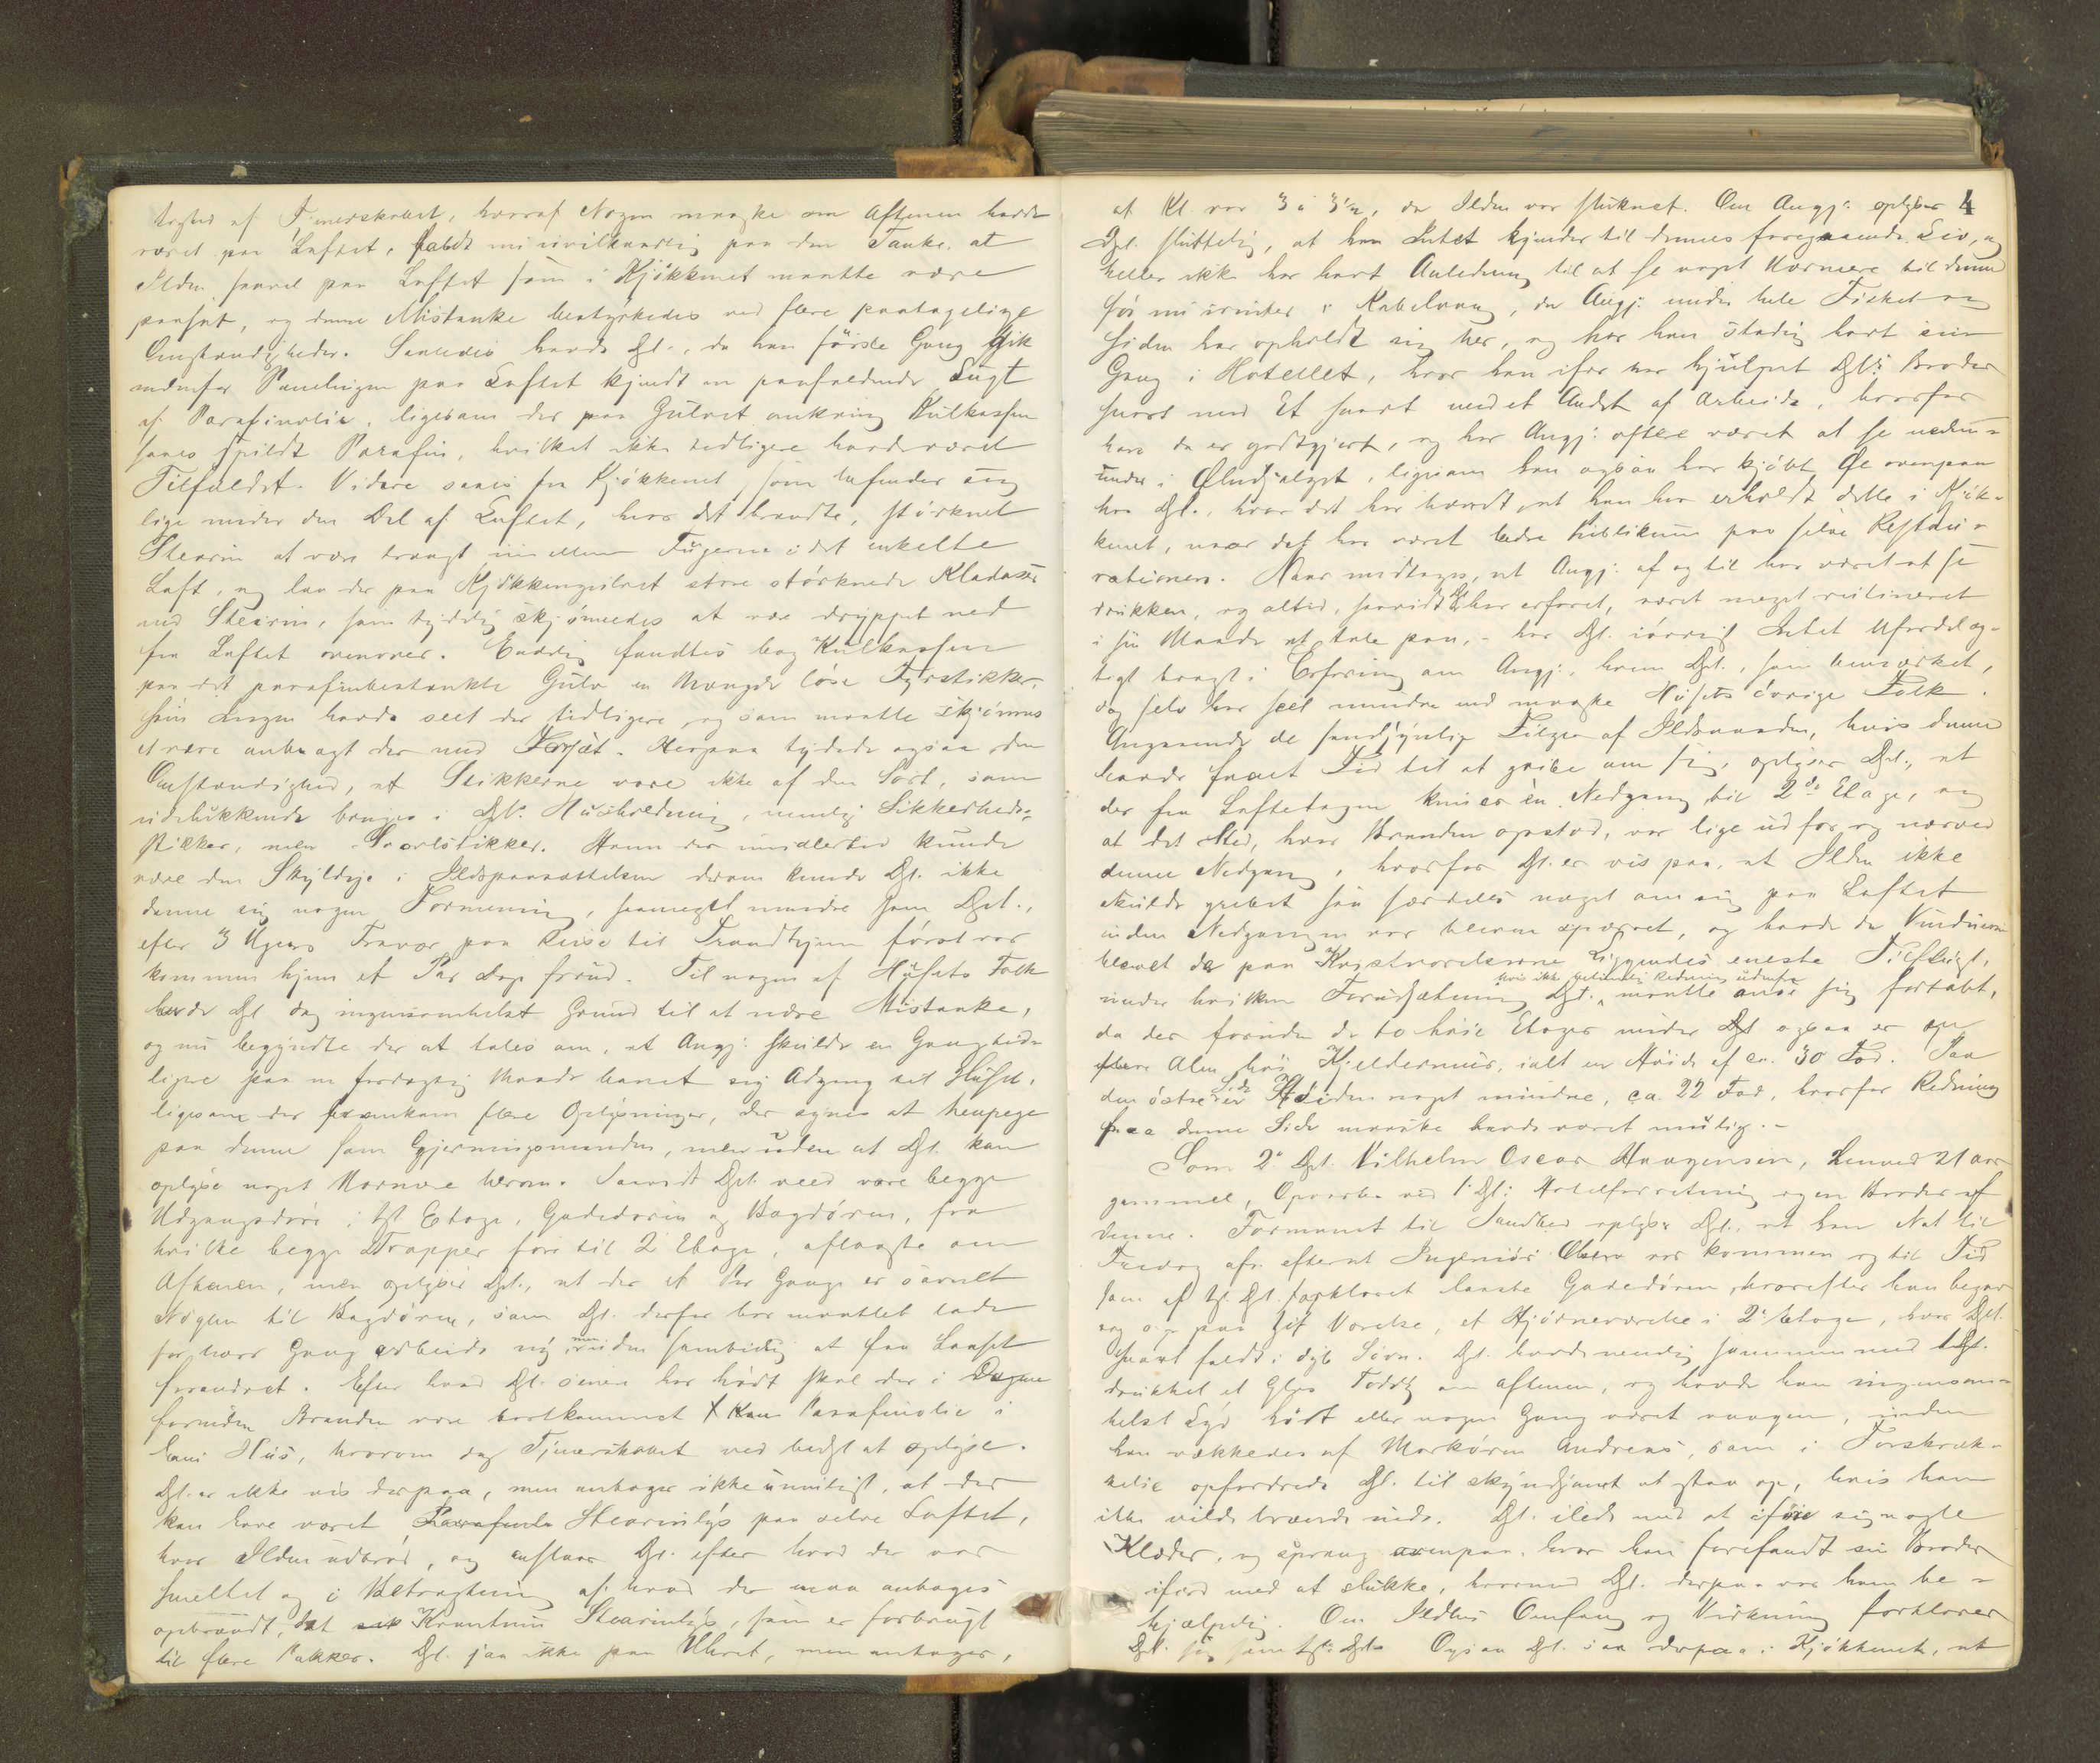 af Tjenerskabet, hvoraf Nogen maaske om Aftenen havde
været paa Loftet, faldt nu uvilkaarlig paa den Tanke, at
Ilden saavel paa Loftet som i Kjøkkenet maatte være
paasat, og denne Mistanke bestyrkedes ved flere paatagelige
Omstændigheder. Saaledes havde Dpt., da han første Gang gik
indenfor Panelingen paa Loftet kjendt en paafaldende Lugt
af Parafinolie, ligesom der paa Gulvet omkring Kulkassen
saaes spildt Parafin, hvilket ikke tidligere havde været
Tilfældet. Videre saaes fra Kjøkkenet, som befinder sig
lige under den Del af Loftet, hvor det brændte, størknet
Stearin at være trængt imellem Fugerne i det enkelte
Loft, og laa der paa Kjøkkengulvet store størknede Kladasser
med Stearin, som tydelig skjønnedes at være dryppet ned
fra Loftet ovenover. Endelig fandtes bag Kulkassen
paa det parafinbestænkte Gulv en Mængde løse Fyrstikker,
som Ingen havde seet der tidligere, og som maatte skjønnes
at være anbragt der med Forsæt. Herpaa tydede ogsaa den
Omstændighed, at Stikkerne vare ikke af den Sort, som
udelukkende bruges i Dpt's Husholdning, nemlig Sikkerheds-
stikker, men Svovlstikker. Hvem der imidlertid kunde
være den Skyldige i Ildspaasættelsen derom kunde Dpt. ikke
danne sig nogen Formening, saameget mindre som Dpt.,
efter 3 Ugers Fravær paa Reise til Trondhjem først var
kommen hjem et Par Dage forud. Til nogen af Husets Folk
havde Dpt dog ingensomhelst Grund til at nære Mistanke,
og nu begyndte der at tales om, at Angj: skulde en Gang tid-
ligere paa en fordægtig Maade banet sig Adgang til Huset,
ligesom der fremkom flere Oplysninger, der synes at henpege
paa denne som Gjerningsmanden, men uden at Dpt. kan
oplyse noget Nærmere herom. Saavidt Dpt. veed vare begge
Udgangsdøre i 1st Etage, Gadedøren og Bagdøren, fra
hvilke begge Trapper føre til 2 Etage, aflaaste om
Aftenen, men oplyser Dpt., at der et Par Gange er savnet
Nøglen til Bagdøren, som Dpt. derfor har maattet lade
for hver Gang arbeide ny, men uden samtidig at faa Laaset
forandret. Efter hvad Dpt. senere har hørt skal der i Dagene
forinden Branden være bortkommet 1 Kan Parafinolie i
hans Hus, hvorom dog Tjenerskabet ved bedst at oplyse.
Dpt. er ikke vis derpaa, men antager ikke umuligt, at der
kan have været Stearinlys paa selve Loftet,
hvor Ilden udbrød, og anslaar Dpt. efter hvad der var
smeltet og i Betragtning af hvad der maa antages
opbrændt, det Kvantum Stearinlys, som er forbrugt
til flere Pakker. Dpt. saa ikke paa Uhret, men antager,
4
at Kl. var 3 à 3½, da Ilden var slukket. Om Angj: oplyser
Dpt. sluttelig, at han Intet kjender til dennes foregaaende Liv, og
heller ikke har havt Anledning til at se noget Nærmere til denne
før nu ivinter i Kabelvaag, da Angj: under hele Fisket og
siden har opholdt sig her, og har han stadig havt sin
Gang i Hotellet, hvor han især har hjulpet Dpt's Broder
snart med Et snart med et Andet af Arbeide, hvorfor
han da er godtgjort, og har Angj: oftere været at se neden-
under i Øludsalget, ligesom han ogsaa har kjøbt Øl ovenpaa
hos Dpt., hvor det har hændt, at han har erholdt dette i Kjøk-
kenet, naar det har været bedre Publikum paa selve Restau-
rationen. Naar undtages, at Angj: af og til har været at se
drukken, og altid, saavidt Dpt har erfaret, været meget rutineret
i sin Maade at tale paa, – har Dpt. iøvrigt Intet Ufordelag-
tigt bragt i Erfaring om Angj:, hvem Dpt., som bemærket,
dog selv har seet mindre end maaske Husets øvrige Folk.
Angaaende de sandsynlige Følger af Ildsvaaden, hvis denne
havde faaet Tid til at gribe om sig, oplyser Dpt., at
der fra Loftetagen kun er én Nedgang til 2de Etage, og
at det Sted, hvor Branden opstod, var lige ud for og nærved
denne Nedgang, hvorfor Dpt. er vis paa, at Ilden ikke
skulde grebet saa særdeles meget om sig paa Loftet
inden Nedgangen var bleven spærret, og havde da Vinduerne
blevet de paa Kvistværelserne Liggendes eneste Tilflugt,
hvis ikke betimelig Redning udenfra
under hvilken Forudsætning Dpt. maatte anse sig fortabt,
da der foruden de to høie Etager under Dpt ogsaa er en
flere Alen høi Kjeldermur, ialt en Høide af ca. 30 Fod. Paa
den østre Side er Høiden noget mindre, ca. 22 Fod, hvorfor Redning
fra denne Side maaske havde været mulig. –
Som 2' Dpt. Vilhelm Oscar Haagensen, 21 aar
gammel, Opvarter ved 1' Dpt: Hotelforretning og en Broder af
denne. Formanet til Sandhed oplyser Dpt., at han Nat til
Fredag efterat Ingeniør var kommen og til Tid
som af 1st Dpt. forklaret laaste Gadedøren, hvorefter han begav
sig op paa sit Værelse, et Hjørneværelse i 2' Etage, hvor Dpt.
snart faldt i dyb Søvn. Dpt. havde nemlig sammen med 1 Dpt.
drukket et Glas Toddy om Aftenen, og havde han ingensom-
helst Lyd hørt eller nogen Gang været vaagen, inden
han vækkedes af Markøren Andreas, som i Forskræk-
kelse opfordrede Dpt. til skyndsomt at staa op, hvis han
ikke vilde brænde inde. Dpt. ilede med at iføre sig nogle
Klæder, og sprang ovenpaa, hvor han forefandt sin Broder
ifærd med at slukke, hvormed Dpt. derpaa var ham be-
hjælpelig. Om Ildens Omfang og Virkning forklarer
Dpt. sig som 1st Dpt. Ogsaa Dpt. saa derpaa i Kjøkkenet, at